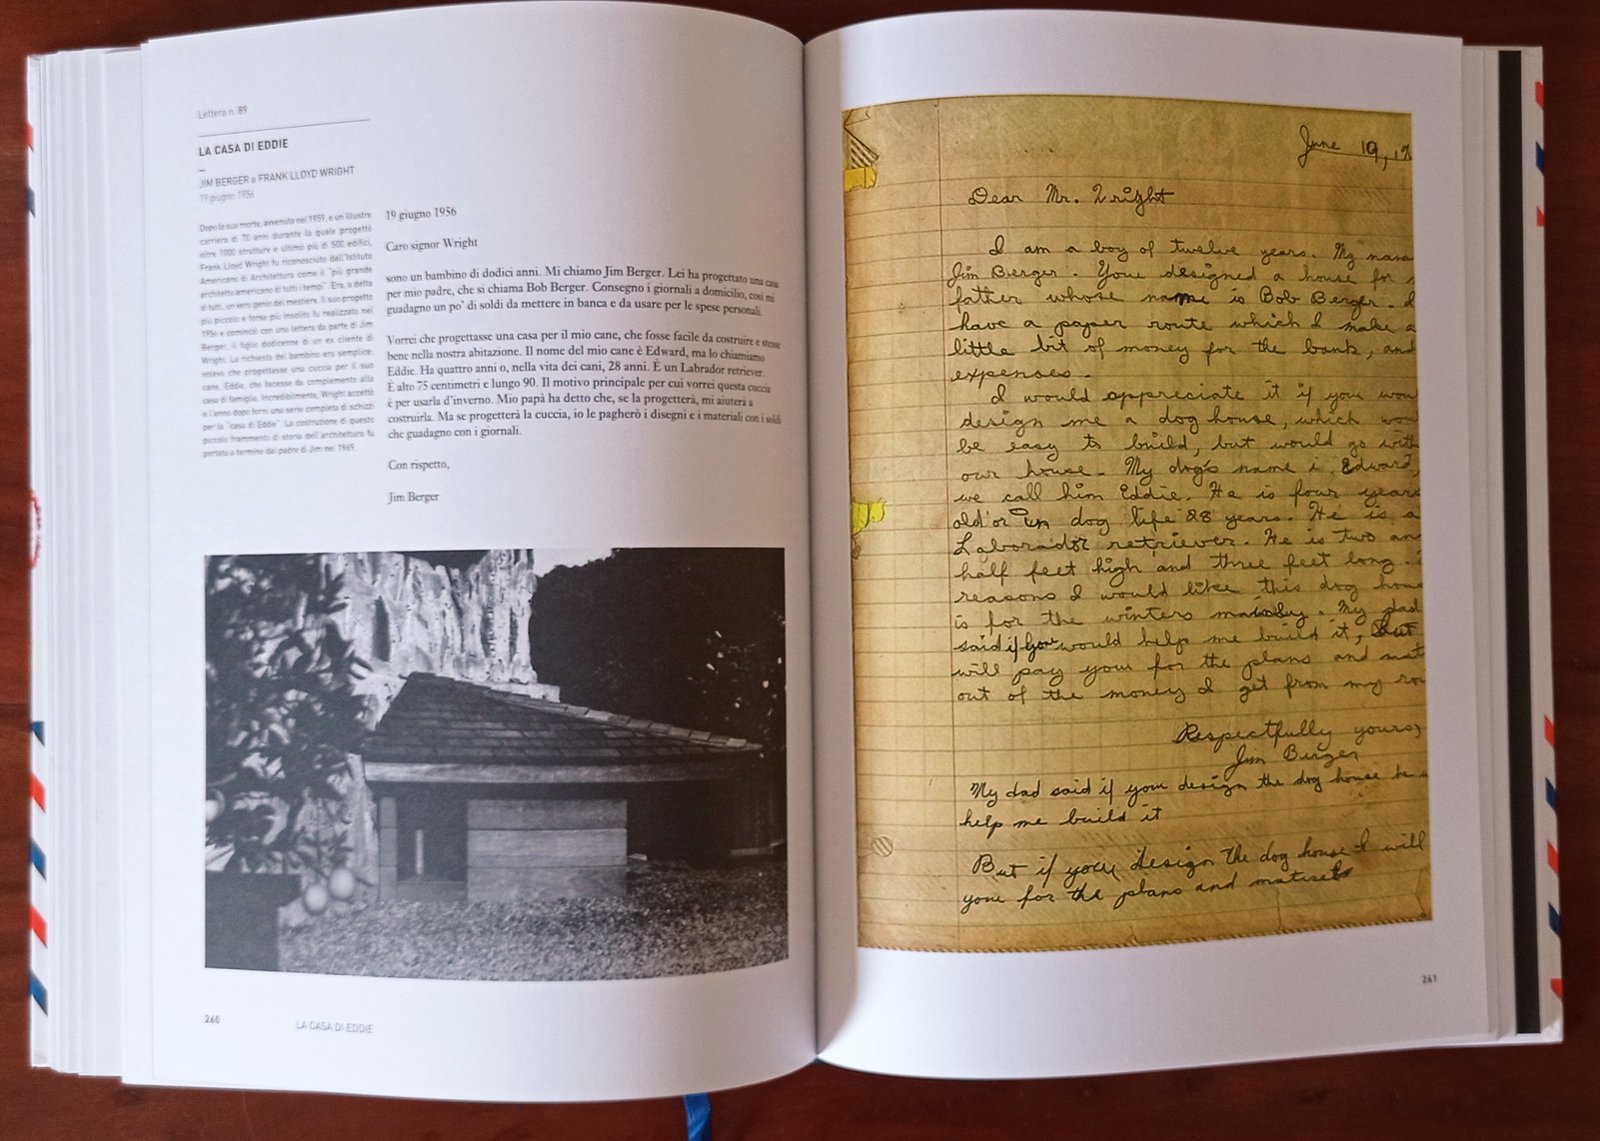 Lettera n. 89
LA CASA DI EDDIE
JIM BERGER a FRANK LLOYD WRIGHT
19 giugno 1956
Dopo la sua morte, avvenuta nel 1959, e un'illustre
carriera di 70 anni durante la quale progettò
oltre 1000 strutture e ultimò più di 500 edifici,
Frank Lloyd Wright fu riconosciuto dall'Istituto
Americano di Architettura come il "più grande
architetto americano di tutti i tempi". Era, a detta
di tutti, un vero genio del mestiere. Il suo progetto
più piccolo e forse più insolito fu realizzato nel
1956 e cominciò con una lettera da parte di Jim
Berger, il figlio dodicenne di un ex cliente di
Wright. La richiesta del bambino era semplice:
voleva che progettasse una cuccia per il suo
cane, Eddie, che facesse da complemento alla
casa di famiglia. Incredibilmente, Wright accettò
e l'anno dopo fornì una serie completa di schizzi
per la "casa di Eddie". La costruzione di questo
piccolo frammento di storia dell'architettura fu
portata a termine dal padre di Jim nel 1969.
19 giugno 1956
Caro signor Wright
sono un bambino di dodici anni. Mi chiamo Jim Berger. Lei ha progettato una casa
per mio padre, che si chiama Bob Berger. Consegno i giornali a domicilio, così mi
guadagno un po' di soldi da mettere in banca e da usare per le spese personali.
Vorrei che progettasse una casa per il mio cane, che fosse facile da costruire e stesse
bene nella nostra abitazione. Il nome del mio cane è Edward, ma lo chiamiamo
Eddie. Ha quattro anni o, nella vita dei cani, 28 anni. È un Labrador retriever.
È alto 75 centimetri e lungo 90. Il motivo principale per cui vorrei questa cuccia
è per usarla d'inverno. Mio papà ha detto che, se la progetterà, mi aiuterà a
costruirla. Ma se progetterà la cuccia, io le pagherò i disegni e i materiali con i soldi
che guadagno con i giornali.
Con rispetto,
Jim Berger
260 LA CASA DI EDDIE
June 19, 19
Dear Mr. Wright
I am a boy of twelve years. My name
Jim Berger. You designed a house for
father whose name is Bob Berger. I
have a paper route which I make a
little bit of money for the bank, and
expences.
I would appreciate it if you wou
design me a dog house, which wou
be easy to build, but would go with
our house. My dog's name i Edward,
we call him Eddie. He is four years
old or in dog life 28 years. He is a
Laborador retriever. He is two an
half feet high and three feet long.
reasons I would like this dog hous
is for the winters mainly. My dad
said if you would help me build it, But
will pay you for the plans and mat
out of the money I get from my rou
Respectfully yours,
Jim Berger
My dad said if you design the dog house he
help me build it
But if you design the dog house I will
you for the plans and
261